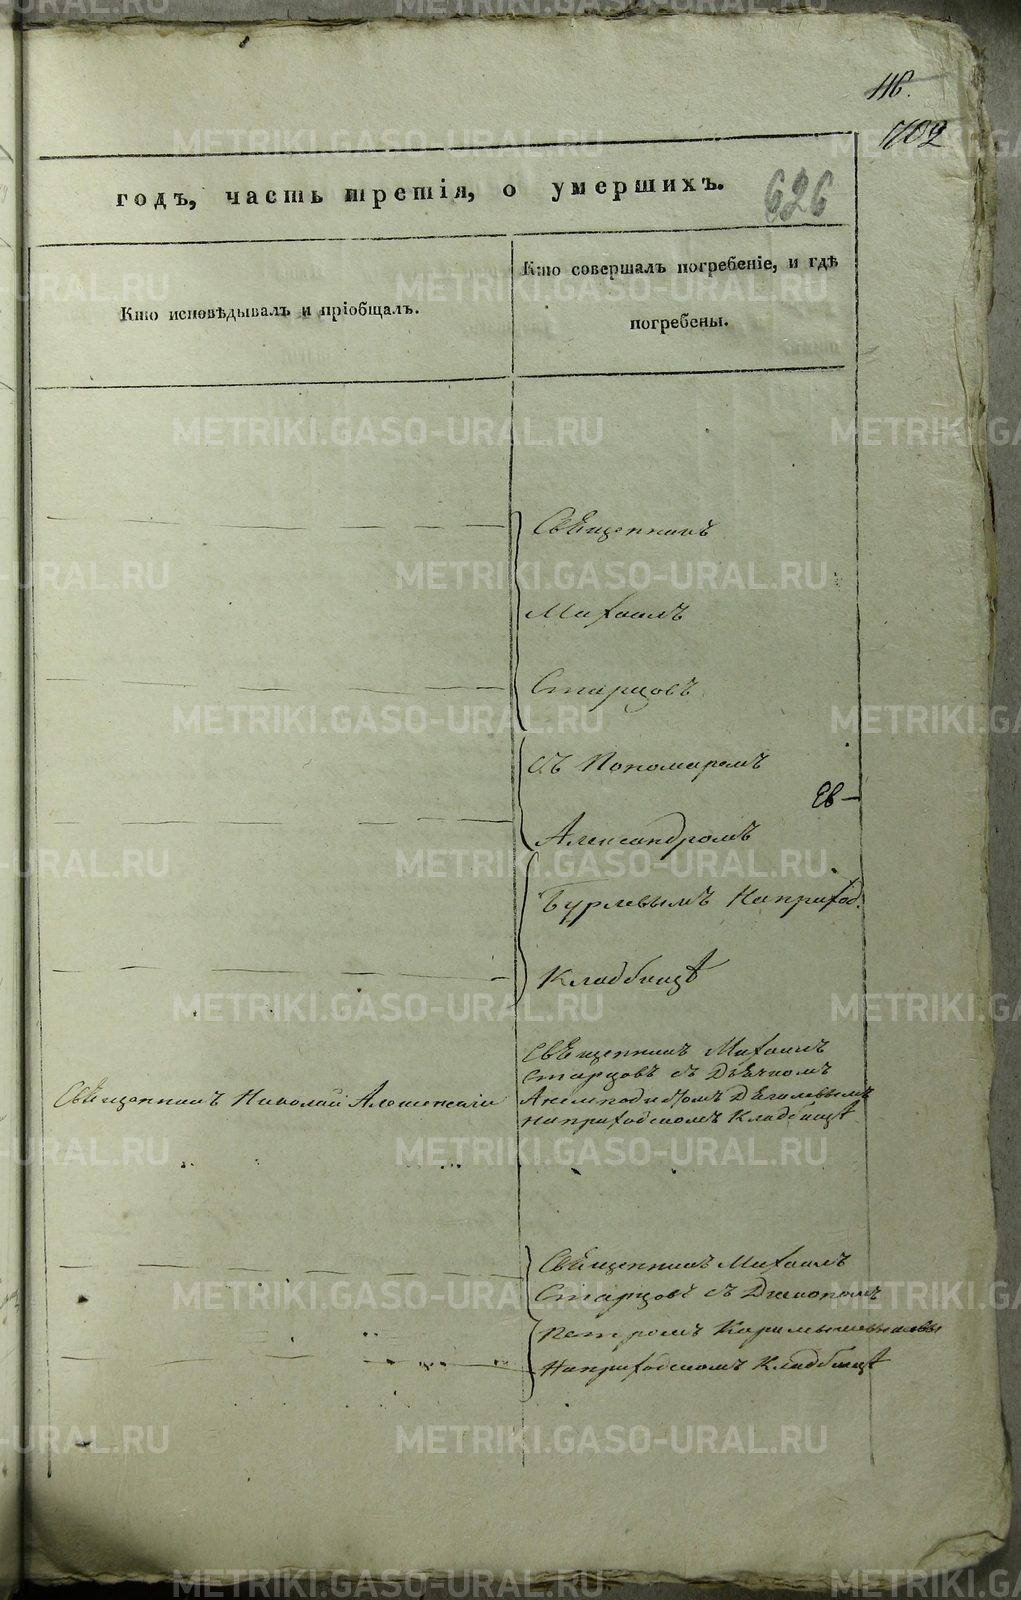 116.
702
годъ, часть третія, о умершихъ. 626
Кто исповѣдывалъ и пріобщалъ.
Кто совершалъ погребеніе, и гдѣ
погребены.
Священникъ
Михаилъ
Старцовъ
съ Пономаремъ
Ев-
Александромъ
Бурлевымъ на приход.
Кладбищѣ
Священникъ Михаилъ
Старцовъ съ Дьячкомъ
Священникъ Николай
Анемподистомъ Дѣгилевымъ
на приходскомъ Кладбищѣ
Священникъ Михаилъ
Старцовъ съ Диакономъ
Петромъ
на приходскомъ Кладбищѣ
METRIKI.GASO-URAL.RU